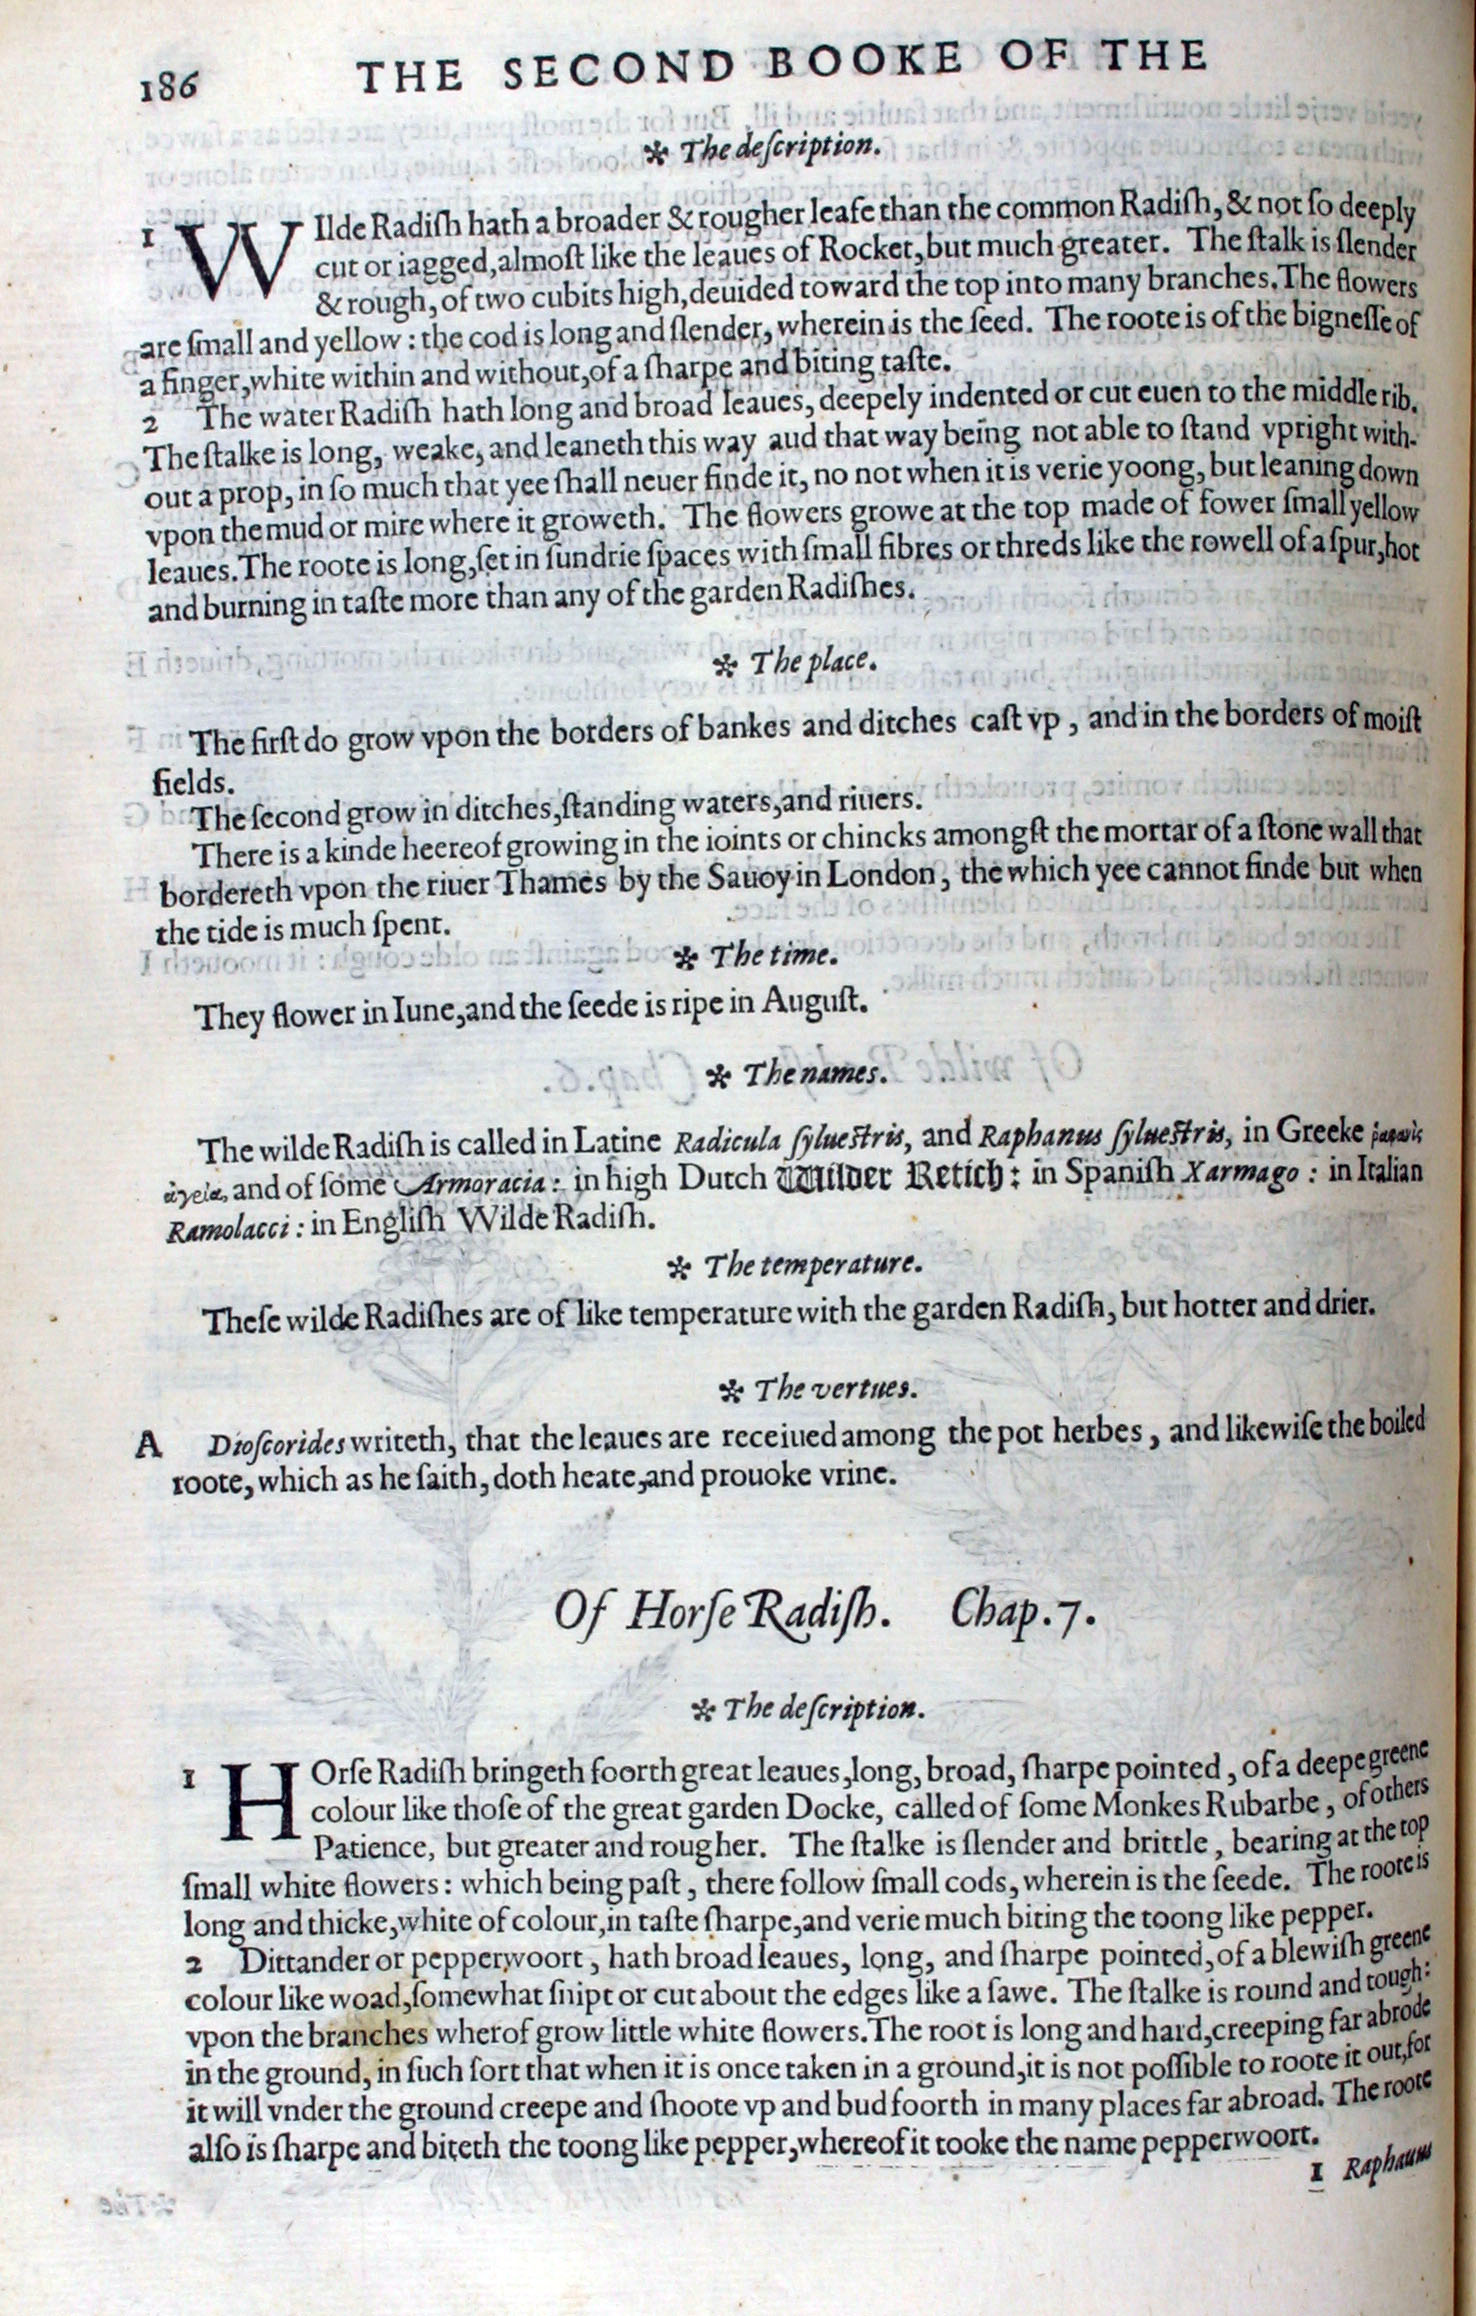 186 THE SECOND BOOKE OF THE
✲ The deſcription.
1 WIlde Radiſh hath a broader & rougher leafe than the common Radiſh, & not ſo deeply
cut or iagged, almoſt like the leaues of Rocket, but much greater. The ſtalk is ſlender
& rough, of two cubits high, deuided toward the top into many branches. The flowers
are ſmall and yellow: the cod is long and ſlender, wherein is the ſeed. The roote is of the bigneſſe of
a finger, white within and without, of a ſharpe and biting taſte.
2 The water Radiſh hath long and broad leaues, deepely indented or cut euen to the middle rib.
The ſtalke is long, weake, and leaneth this way aud that way being not able to ſtand vpright with-
out a prop, in ſo much that yee ſhall neuer finde it, no not when it is verie yoong, but leaning down
vpon the mud or mire where it groweth. The flowers growe at the top made of fower ſmall yellow
leaues. The roote is long, ſet in ſundrie ſpaces with ſmall fibres or threds like the rowell of a ſpur, hot
and burning in taſte more than any of the garden Radiſhes.
✲ The place.
The firſt do grow vpon the borders of bankes and ditches caſt vp, and in the borders of moiſt
fields.
The ſecond grow in ditches, ſtanding waters, and riuers.
There is a kinde heereof growing in the ioints or chincks amongſt the mortar of a ſtone wall that
bordereth vpon the riuer Thames by the Sauoy in London, the which yee cannot finde but when
the tide is much ſpent.
✲ The time.
They flower in Iune, and the ſeede is ripe in Auguſt.
✲ The names.
The wilde Radiſh is called in Latine Radicula ſylueſtris, and Raphanus ſylueſtris, in Greeke ῥαφανὶς
ἀγρία, and of ſome Armoracia: in high Dutch Wilder Retich: in Spaniſh Xarmago: in Italian
Ramolacci: in Engliſh Wilde Radiſh.
✲ The temperature.
Theſe wilde Radiſhes are of like temperature with the garden Radiſh, but hotter and drier.
✲ The vertues.
A Dioſcorides writeth, that the leaues are receiued among the pot herbes, and likewiſe the boiled
roote, which as he ſaith, doth heate, and prouoke vrine.
Of Horſe Radiſh. Chap. 7.
✲ The deſcription.
1 HOrſe Radiſh bringeth foorth great leaues, long, broad, ſharpe pointed, of a deepe greene
colour like thoſe of the great garden Docke, called of ſome Monkes Rubarbe, of others
Patience, but greater and rougher. The ſtalke is ſlender and brittle, bearing at the top
ſmall white flowers: which being paſt, there follow ſmall cods, wherein is the ſeede. The roote is
long and thicke, white of colour, in taſte ſharpe, and verie much biting the toong like pepper.
2 Dittander or pepperwoort, hath broad leaues, long, and ſharpe pointed, of a blewiſh greene
colour like woad, ſomewhat ſnipt or cut about the edges like a ſawe. The ſtalke is round and tough:
vpon the branches wherof grow little white flowers. The root is long and hard, creeping far abrode
in the ground, in ſuch ſort that when it is once taken in a ground, it is not poſſible to roote it out, for
it will vnder the ground creepe and ſhoote vp and bud foorth in many places far abroad. The roote
alſo is ſharpe and biteth the toong like pepper, whereof it tooke the name pepperwoort.
1 Raphanus